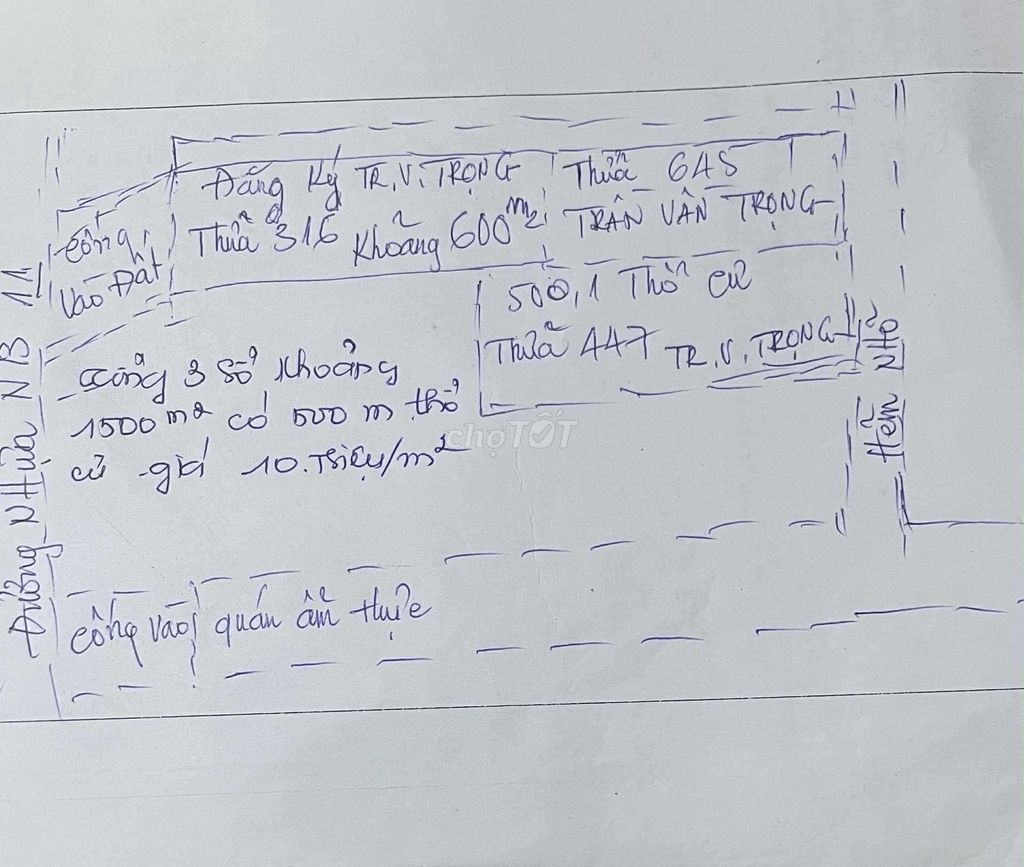 Đăng Ký TR.V.TRỌNG
Thửa 316 Khoảng 600m2
Thửa 645
TRẦN VĂN TRỌNG
Cổng
Vào Đất
500,1 Thổ cư
Thửa 447 TR.V.TRỌNG
3 Sổ khoảng
1500 m2 có 500 m thổ
cư giá 10.Triệu/m2
chợTỐT
Đường Nhựa NB 11
Hẻm Nhỏ
Cổng vào quán ẩm thực